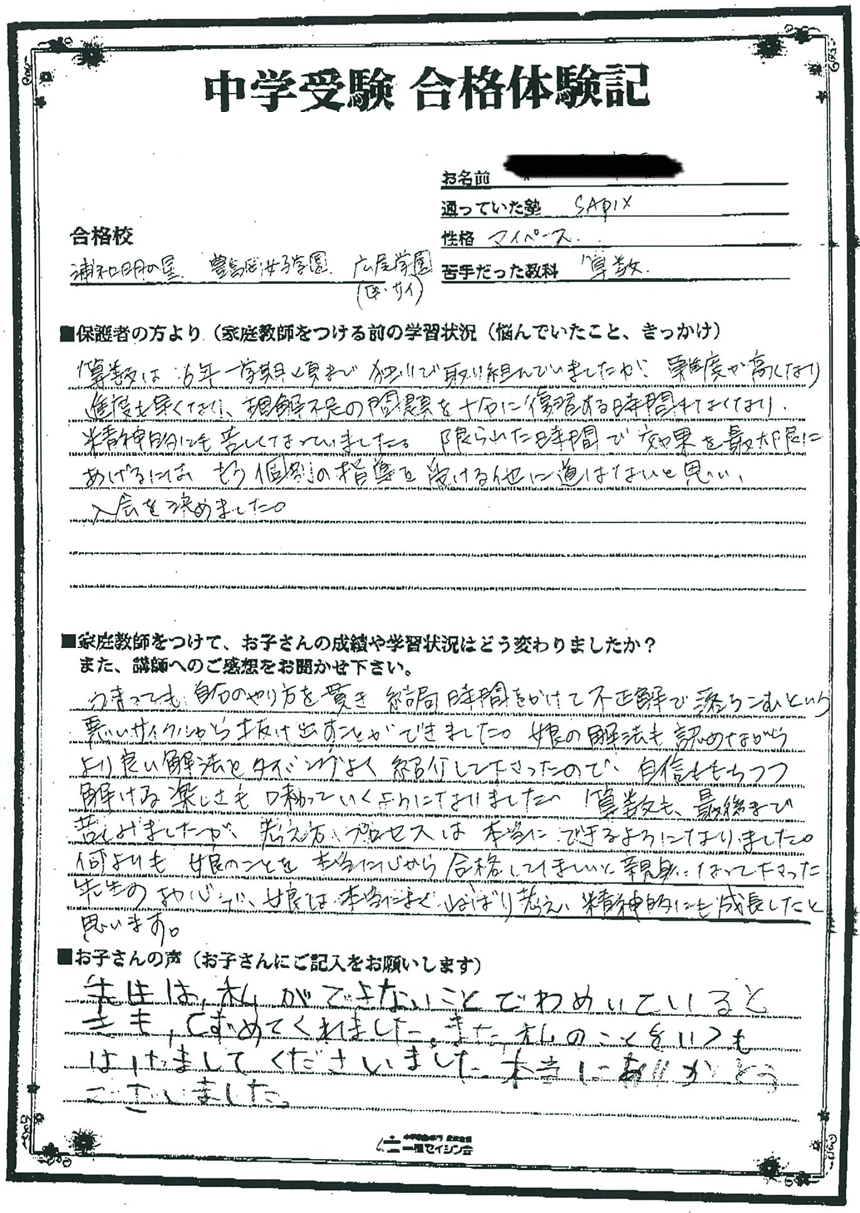 中学受験 合格体験記
お名前
通っていた塾 SAPIX
合格校
性格 マイペース.
浦和明の星 豊島岡女子学園 広尾学園
(医・サイ)
苦手だった教科 算数.
■保護者の方より（家庭教師をつける前の学習状況（悩んでいたこと、きっかけ）
算数は 6年一学期頃まで 独りで取り組んでいましたが、難度が高くなり
進度も早くなり、理解不足の問題を十分に復習する時間もなくなり、
精神的にも苦しくなっていました。 限られた時間で効果を最大限に
あげるには もう個別の指導を受ける他に道はないと思い、
入会を決めました。
■家庭教師をつけて、お子さんの成績や学習状況はどう変わりましたか？
また、講師へのご感想をお聞かせ下さい。
自己のやり方を貫き 結局 時間をかけて 不正解で落ちこむという
悪いサイクルから抜け出すことができました。 娘の解法も認めながら
より良い解法をタイミングよく紹介して下さったので、自信をもちつつ
解ける楽しさも味わっていくようになりました。 算数も、最後まで
苦しみましたが、考え方、プロセスは 本当にできるようになりました。
何よりも 娘のことを 本当に心から 合格してほしいと親身になって下さった
先生の お心で、娘は本当に 考え、精神的にも成長したと
思います。
■お子さんの声（お子さんにご記入をお願いします）
先生は、私ができないことでわめいていると
きも、なぐさめてくれました。また、私のことをいつも
はげましてくださいました。本当にありがとう
ございました。
セイシン会